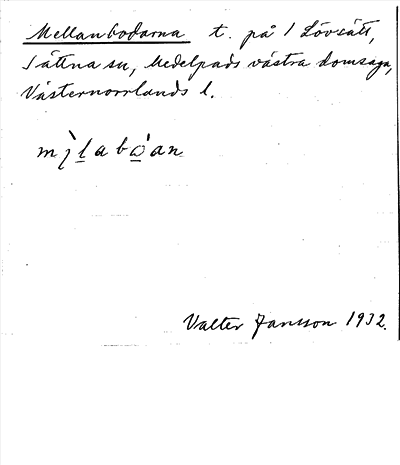 Mellanbodarna t. på 1 Lövsätt,
Sättna sn, Medelpads västra domsaga,
Västernorrlands l.
Valter Jansson 1932.